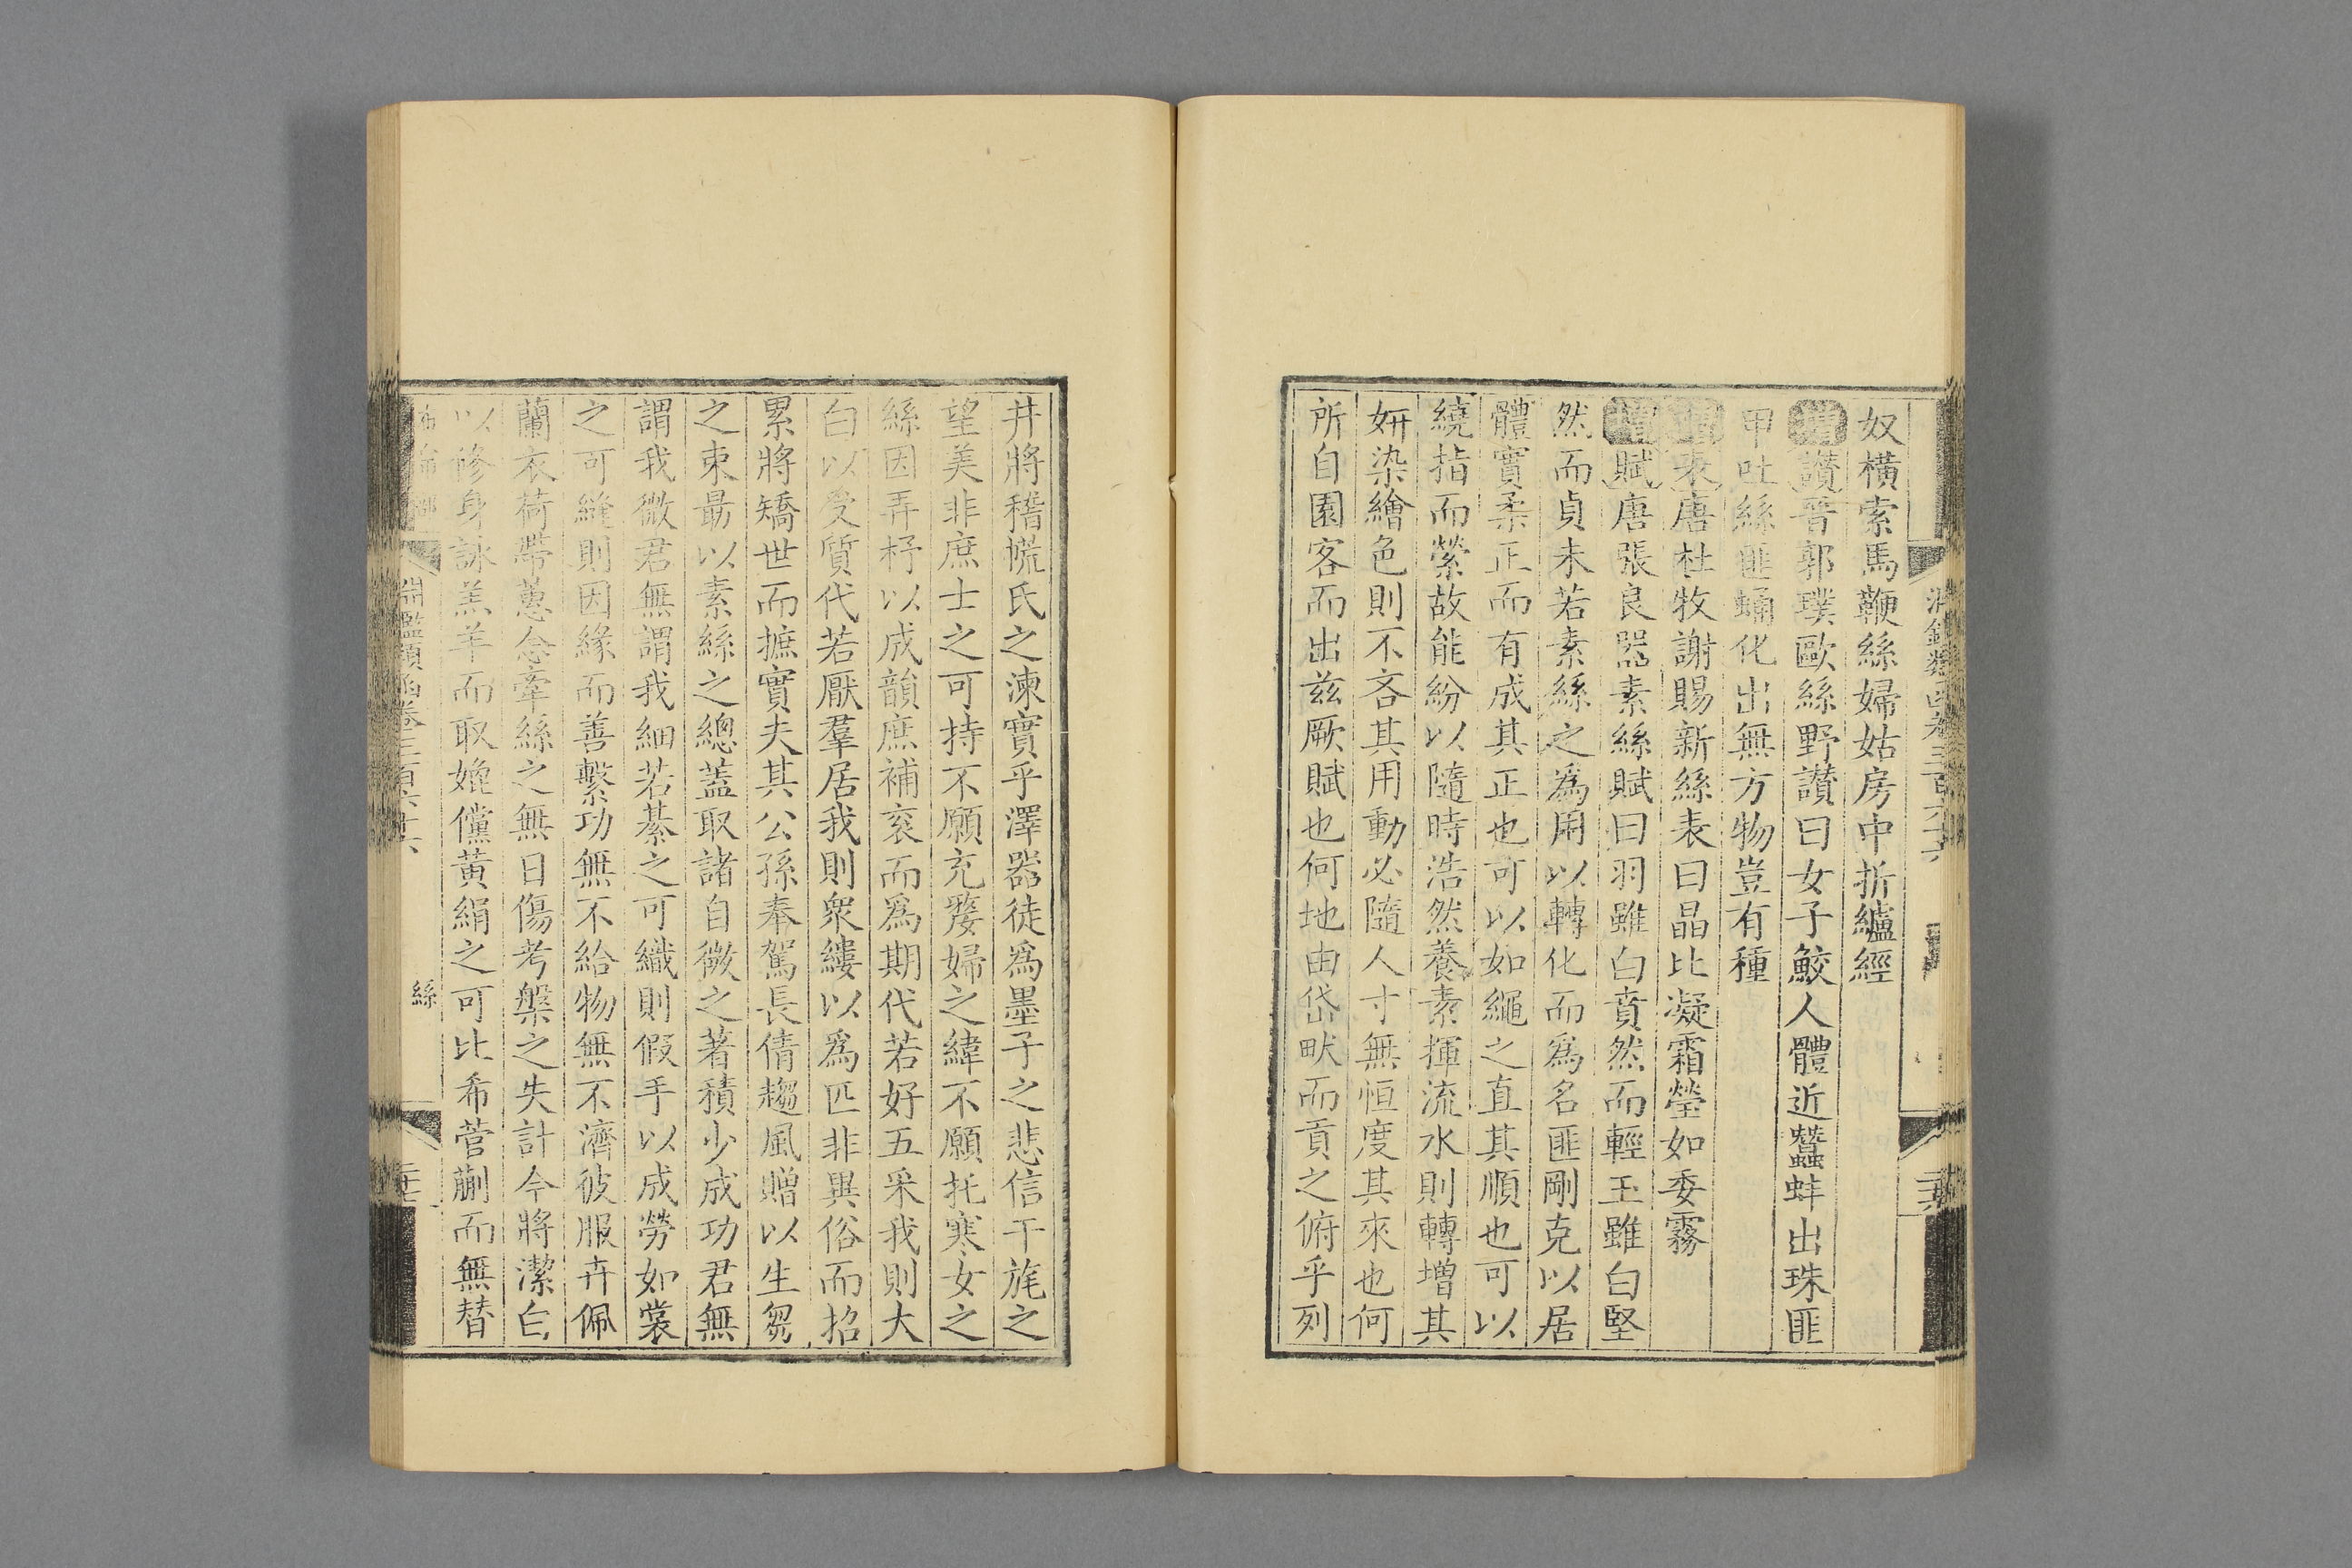 奴橫索馬鞭絲婦姑房中折纑經
增讚晉郭璞歐絲野讚曰女子鮫人體近蠶蚌出珠匪
甲吐絲匪蛹化出無方物豈有種
增表唐杜牧謝賜新絲表曰晶比凝霜瑩如委霧
增賦唐張良器素絲賦曰羽雖白賁然而輕玉雖白堅
然而貞未若素絲之爲用以轉化而爲名匪剛克以居
體實柔正而有成其正也可以如繩之直其順也可以
繞指而縈故能紛以隨時浩然養素揮流水則轉增其
妍染繪色則不吝其用動必隨人寸無恒度其來也何
所自園客而出兹厥賦也何地由岱畎而貢之俯乎列
井將稽㡛氏之湅實乎澤器徒爲墨子之悲信干旄之
望美非庶士之可持不願充嫠婦之緯不願托寒女之
絲因弄杼以成韻庶補衮而爲期代若好五采我則大
白以受質代若厭羣居我則衆縷以爲匹非異俗而招
累將矯世而摭實夫其公孫奉駕長倩趨風贈以生芻
之束勗以素絲之總蓋取諸自微之著積少成功君無
謂我微君無謂我細若綦之可織則假手以成勞如裳
之可縫則因緣而善繫功無不給物無不濟彼服卉佩
蘭衣荷帶蕙念牽絲之無日傷考槃之失計今將潔白
以修身詠羔羊而取媲儻黃絹之可比希菅蒯而無替
淵鑑類函卷三百六十六
絲